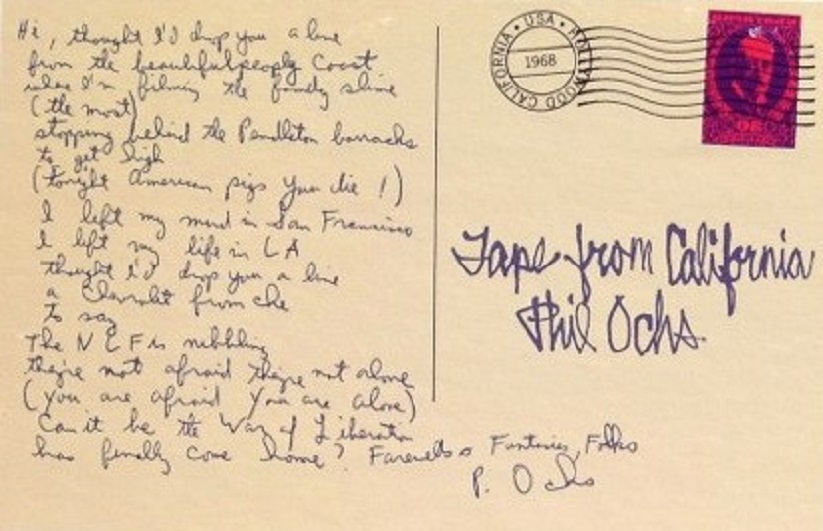 Hi, thought I'd drop you a line
from the beautifulpeoply Coast
where I'm filming the family slime
(the most)
stopping behind the Pendleton barracks
to get high
(tonight American pigs you die!)
I left my mind in San Francisco
I left my life in LA
thought I'd drop you a line
a Chevrolet from che
to say
The NLF is nibbling
they're not afraid they're not alone
(you are afraid you are alone)
Can it be the War of Liberation
has finally come home? Farewells & Fantasies, Folks
P. Ochs
CALIFORNIA • USA • HOLLYWOOD CALIFORNIA
1968
Tape from California
Phil Ochs.